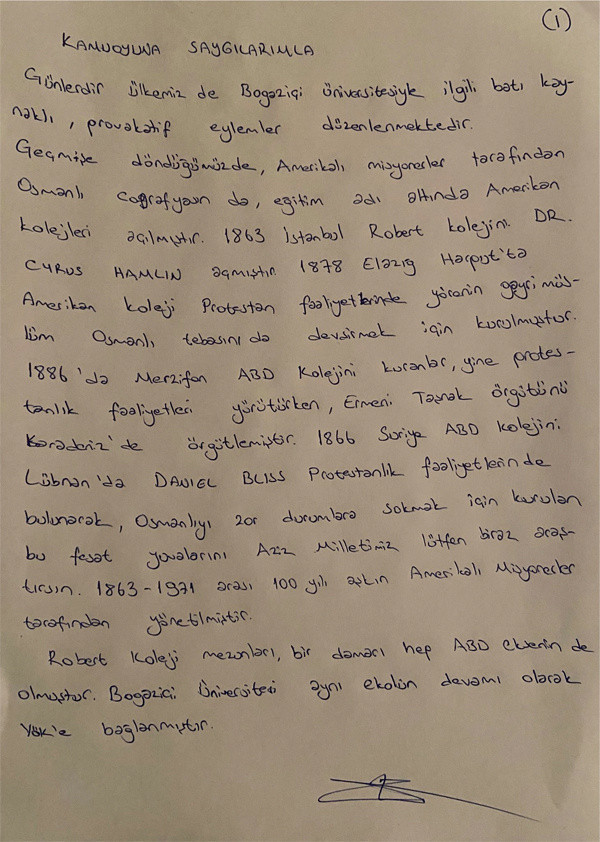 (1)
KAMUOYUNA SAYGILARIMLA
Günlerdir ülkemiz de Bogaziçi üniversitesiyle ilgili batı kay-
naklı, provakatif eylemler düzenlenmektedir.
Geçmişe döndüğümüzde, Amerikalı misyonerler tarafından
Osmanlı coğrafyasın da, eğitim adı altında Amerikan
kolejleri açılmıştır. 1863 İstanbul Robert kolejini DR.
CYRUS HAMLIN açmıştır. 1878 Elazıg Harput'ta
Amerikan koleji Protestan faaliyetlerinde yörenin gayri müs-
lüm Osmanlı tebasını da devşirmek için kurulmuştur.
1886'da Merzifon ABD Kolejini kuranlar, yine protes-
tanlık faaliyetleri yürütürken, Ermeni Taşnak örgütünü
Karadeniz'de örgütlemiştir. 1866 Suriye ABD kolejini
Lübnan'da DANIEL BLISS Protestanlık faaliyetlerin de
bulunarak, Osmanlıyı zor durumlara sokmak için kurulan
bu fesat yuvalarını Aziz Milletimiz lütfen biraz araş-
tırsın. 1863-1971 arası 100 yılı aşkın Amerikalı Misyonerler
tarafından yönetilmiştir.
Robert Koleji mezunları, bir damarı hep ABD eksenin de
olmuştur. Bogaziçi Üniversitesi aynı ekolün devamı olarak
YÖK'e bağlanmıştır.